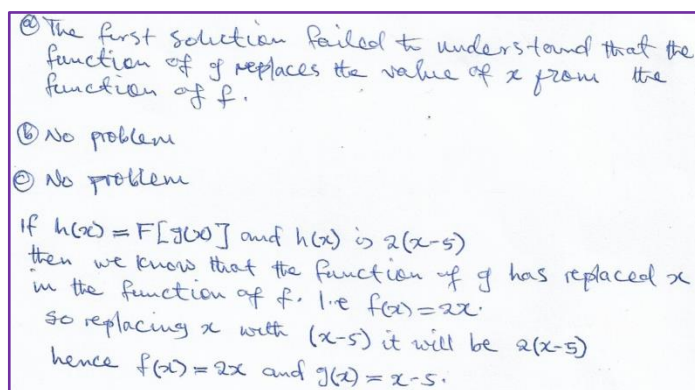 ⓐ The first solution failed to understand that the
function of g replaces the value of x from the
function of f.
ⓑ No problem
ⓒ No problem
If h(x) = F[g(x)] and h(x) is 2(x-5)
then we know that the function of g has replaced x
in the function of f. I.e f(x) = 2x.
so replacing x with (x-5) it will be 2(x-5)
hence f(x) = 2x and g(x) = x-5.